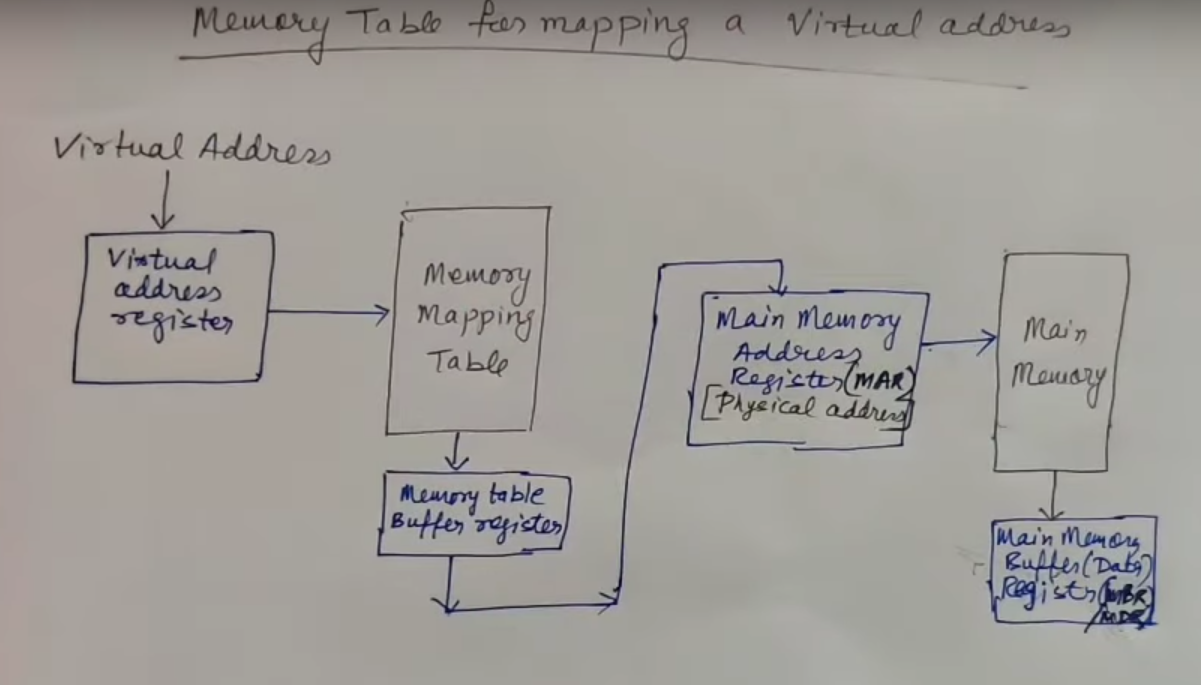 Memory Table for mapping a Virtual address
Virtual Address
Virtual
address
register
Memory
Mapping
Table
Memory table
Buffer register
Main Memory
Address
Register (MAR)
[Physical address]
Main
Memory
Main Memory
Buffer (Data)
Register (MBR)
/MDR